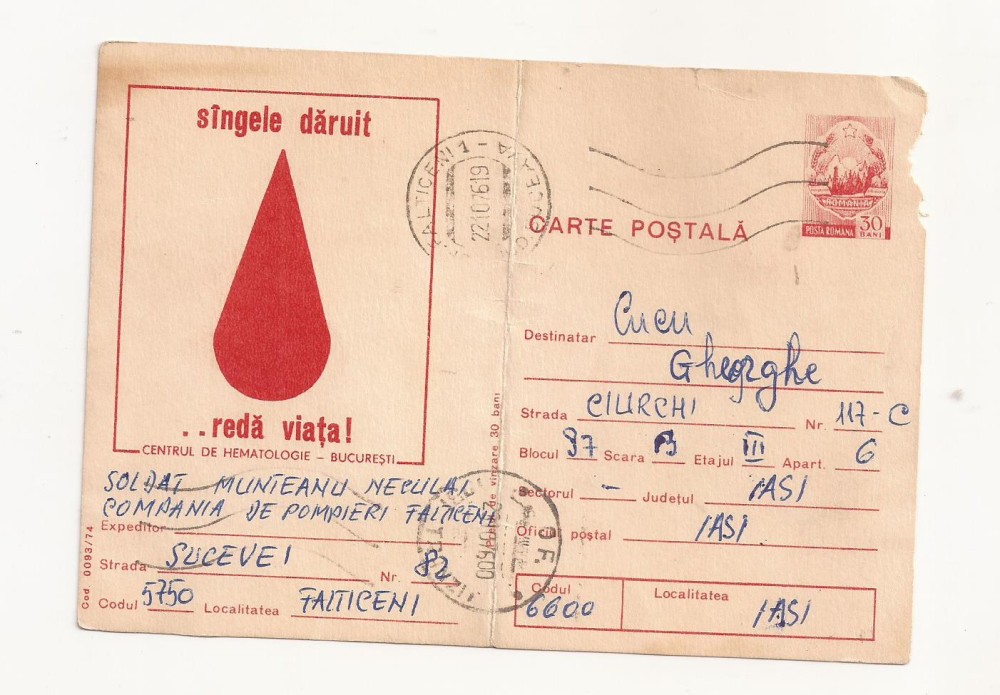 sîngele dăruit
..redă viața!
CENTRUL DE HEMATOLOGIE – BUCUREȘTI
SOLDAT MUNTEANU NECULAI
COMPANIA DE POMPIERI FALTICENI
Expeditor
Strada SUCEVEI Nr. 82
Codul 5750 Localitatea FALTICENI
Cod. 0093/74
Prețul de vînzare 30 bani
FALTICENI 1 - SUCEAVA
22.10.76.19
CARTE POȘTALĂ
ROMANIA
POSTA ROMANA 30 BANI
Destinatar Cucu
Gheorghe
Strada CIURCHI Nr. 117-C
Blocul 97 Scara B Etajul III Apart. 6
Sectorul - Județul IASI
Oficiul poștal IASI
Codul 6600 Localitatea IASI